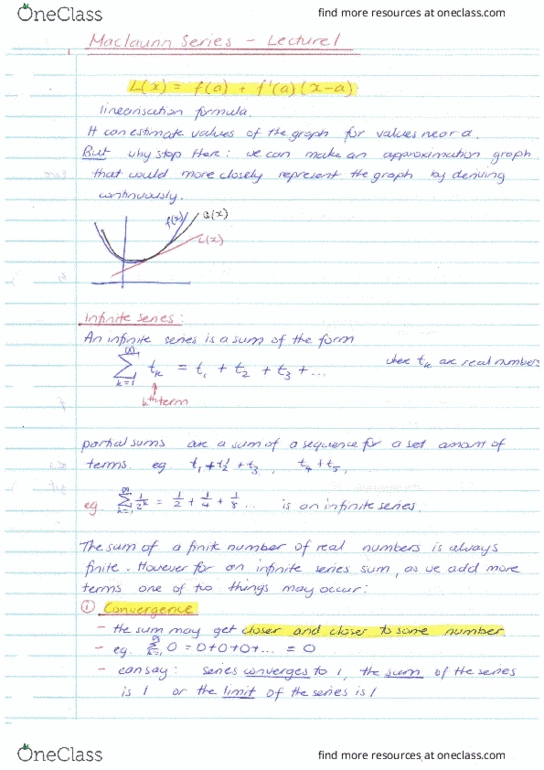 OneClass
find more resources at oneclass.com
Maclaurin Series - Lecture 1
L(x) = f(a) + f'(a)(x-a)
linearisation formula.
It can estimate values of the graph for values near a.
But why stop there: we can make an approximation graph
that would more closely represent the graph by deriving
continuously.
f(x) Q(x)
L(x)
Infinite series:
An infinite series is a sum of the form
∞
Σ t_k = t_1 + t_2 + t_3 + ... where t_k are real numbers
k=1
k^th term
partial sums are a sum of a sequence for a set amount of
terms. eg t_1 + t_2 + t_3, t_4 + t_5,
eg. Σ_{k=1}^∞ 1/2^k = 1/2 + 1/4 + 1/8 ... is an infinite series.
The sum of a finite number of real numbers is always
finite. However for an infinite series sum, as we add more
terms one of two things may occur:
① Convergence
- the sum may get closer and closer to some number
- eg. Σ_{k=1}^∞ 0 = 0+0+0+... = 0
- can say: series converges to 1, the sum of the series
is 1 or the limit of the series is 1
OneClass
find more resources at oneclass.com